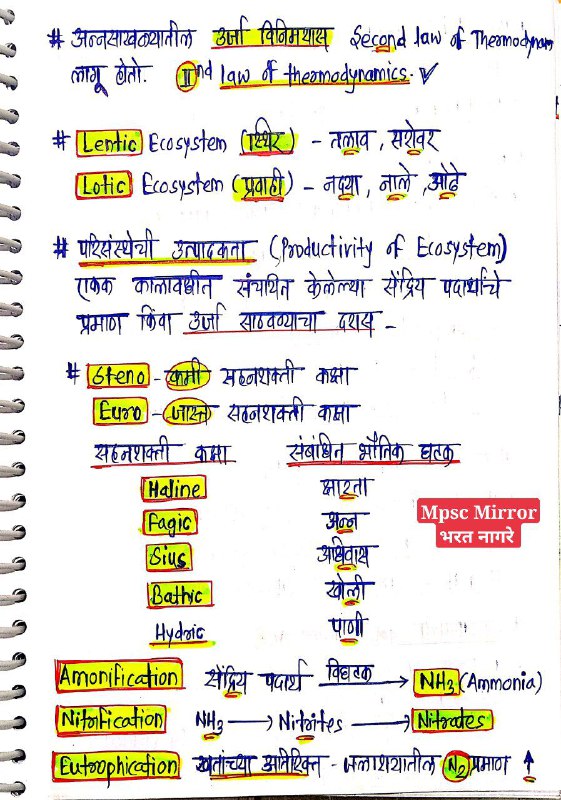 # अन्नसाखळ्यातील उर्जा विनिमयास Second law of Thermodynam
लागू होतो. IInd law of thermodynamics. ✓
# Lentic Ecosystem (स्थिर) - तलाव, सरोवर
Lotic Ecosystem (प्रवाही) - नद्या, नाले, ओढे
# परिसंस्थेची उत्पादकता (Productivity of Ecosystem)
एकक कालावधीत संचयित केलेल्या सेंद्रिय पदार्थाचे
प्रमाण किंवा उर्जा साठवण्याचा दरास -
# Steno - कमी सहनशक्ती कक्षा
Euro - जास्त सहनशक्ती कक्षा
सहनशक्ती कक्षा संबंधित भौतिक घटक
Haline क्षारता
Fagic अन्न
Sius अधिवास
Mpsc Mirror
भरत नागरे
Bathic खोली
Hydric पाणी
Amonification सेंद्रिय पदार्थ विघटक → NH3 (Ammonia)
Nitrification NH3 → Nitrites → Nitrates
Eutrophication खतांच्या अतिरिक्त - जलाशयातील N2 प्रमाण ↑